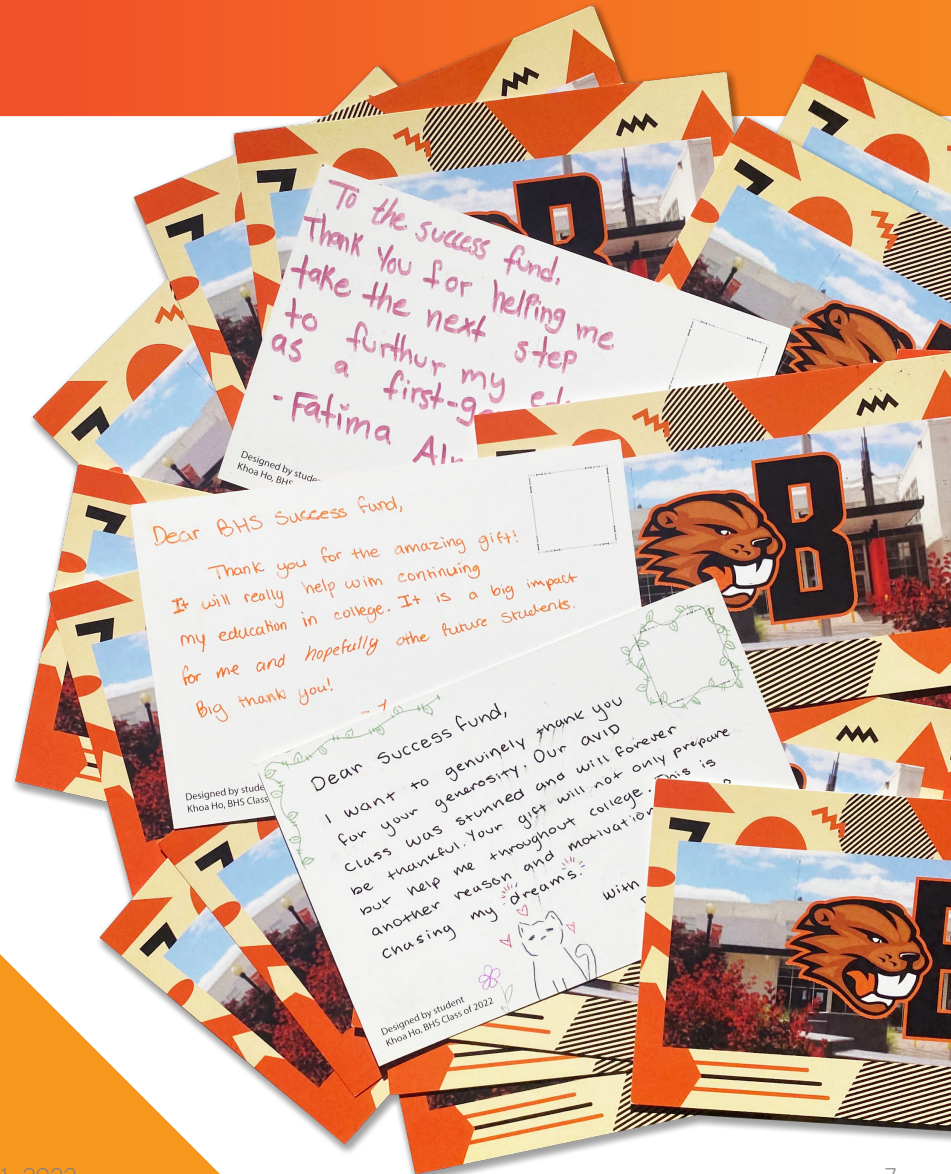 To the success fund,
Thank You for helping me
take the next step
to furthur my
as a first-
- Fatima
Designed by
Khoa Ho, BHS
Dear BHS Success fund,
Thank you for the amazing gift!
It will really help with continuing
my education in college. It is a big impact
for me and hopefully othe future students.
Big thank you!
Designed by
Khoa Ho, BHS Class
Dear Success Fund,
I want to genuinely thank you
for your generosity. Our AVID
class was stunned and will forever
be thankful. Your gift will not only prepare
but help me throughout college. This is
another reason and motivation
chasing my dreams.
With
Designed by student
Khoa Ho, BHS Class of 2022
B
B
B
7